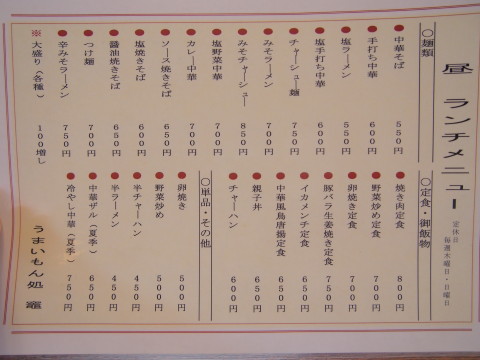 昼 ランチメニュー
定休日
毎週木曜日・日曜日
〇麺類
●中華そば 550円
●手打ち中華 600円
●塩ラーメン 550円
●塩手打ち中華 600円
●チャーシュー麺 750円
●みそラーメン 700円
●みそチャーシュー 850円
●塩野菜中華 700円
●カレー中華 700円
●ソース焼きそば 650円
●塩焼きそば 600円
●醤油焼きそば 650円
●つけ麺 700円
●辛みそラーメン 750円
※大盛り(各種) 100増し
〇定食・御飯物
●焼き肉定食 800円
●野菜炒め定食 700円
●卵焼き定食 700円
●豚バラ生姜焼き定食 750円
●イカメンチ定食 650円
●中華風鳥唐揚定食 700円
●親子丼 650円
●チャーハン 600円
〇単品・その他
●卵焼き 500円
●野菜炒め 500円
●半チャーハン 450円
●半ラーメン 450円
●中華ザル(夏季) 650円
●冷やし中華(夏季) 750円
うまいもん処